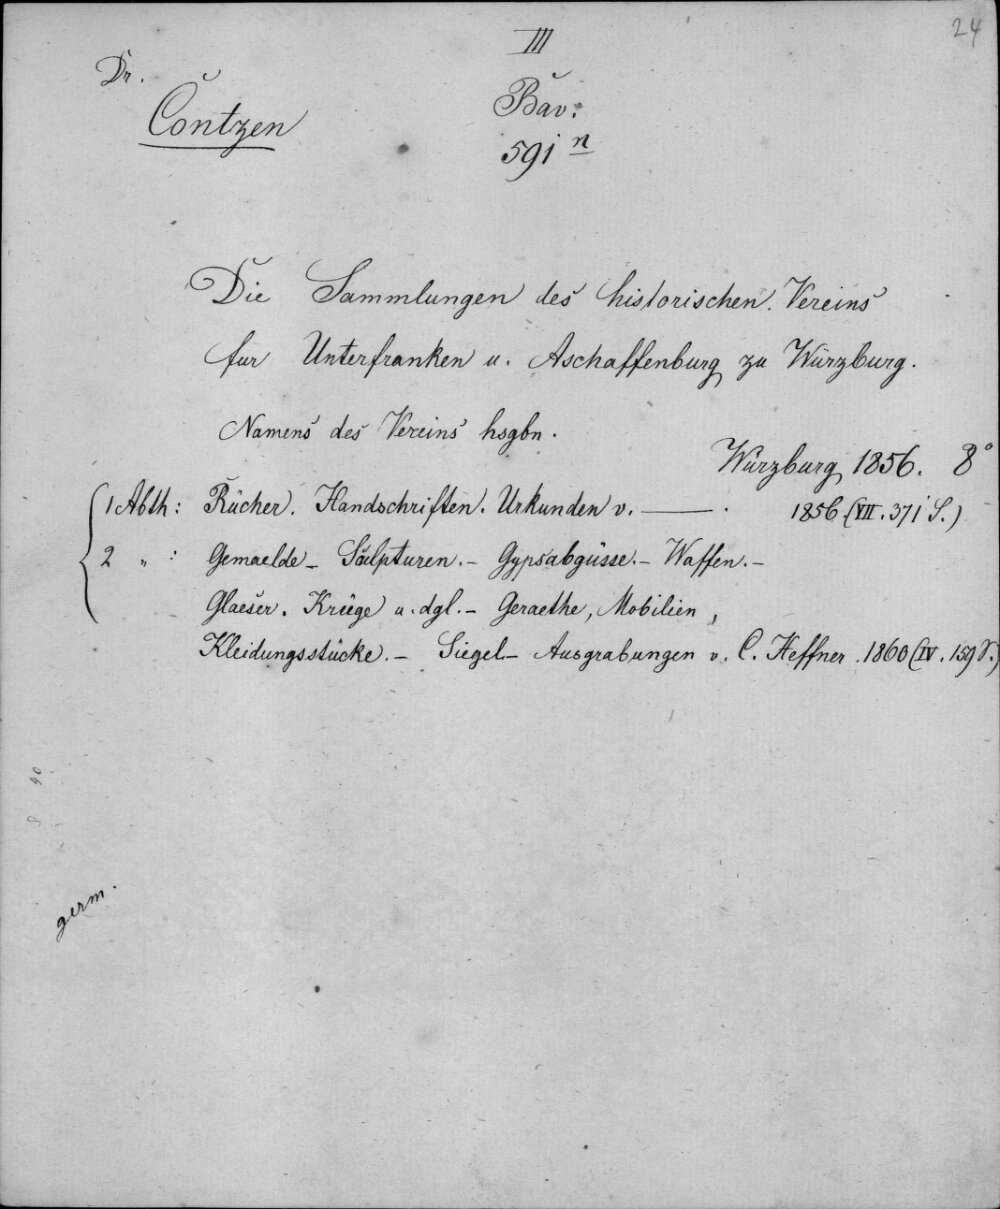 24
III
Dr.
Contzen
Bav.
591 n
Die Sammlungen des historischen Vereins
fur Unterfranken u. Aschaffenburg zu Würzburg.
Namens des Vereins hsgbn.
Würzburg 1856. 8°
1 Abth: Bücher. Handschriften. Urkunden v. ——. 1856 (VII. 371 S.)
2 " : Gemaelde - Sculpturen. - Gypsabgüsse. - Waffen. -
Glaeser. Krüge u. dgl. - Geraethe, Mobilien,
Kleidungsstücke. - Siegel - Ausgrabungen v. C. Heffner. 1860 (IV. 159 S.)
germ.